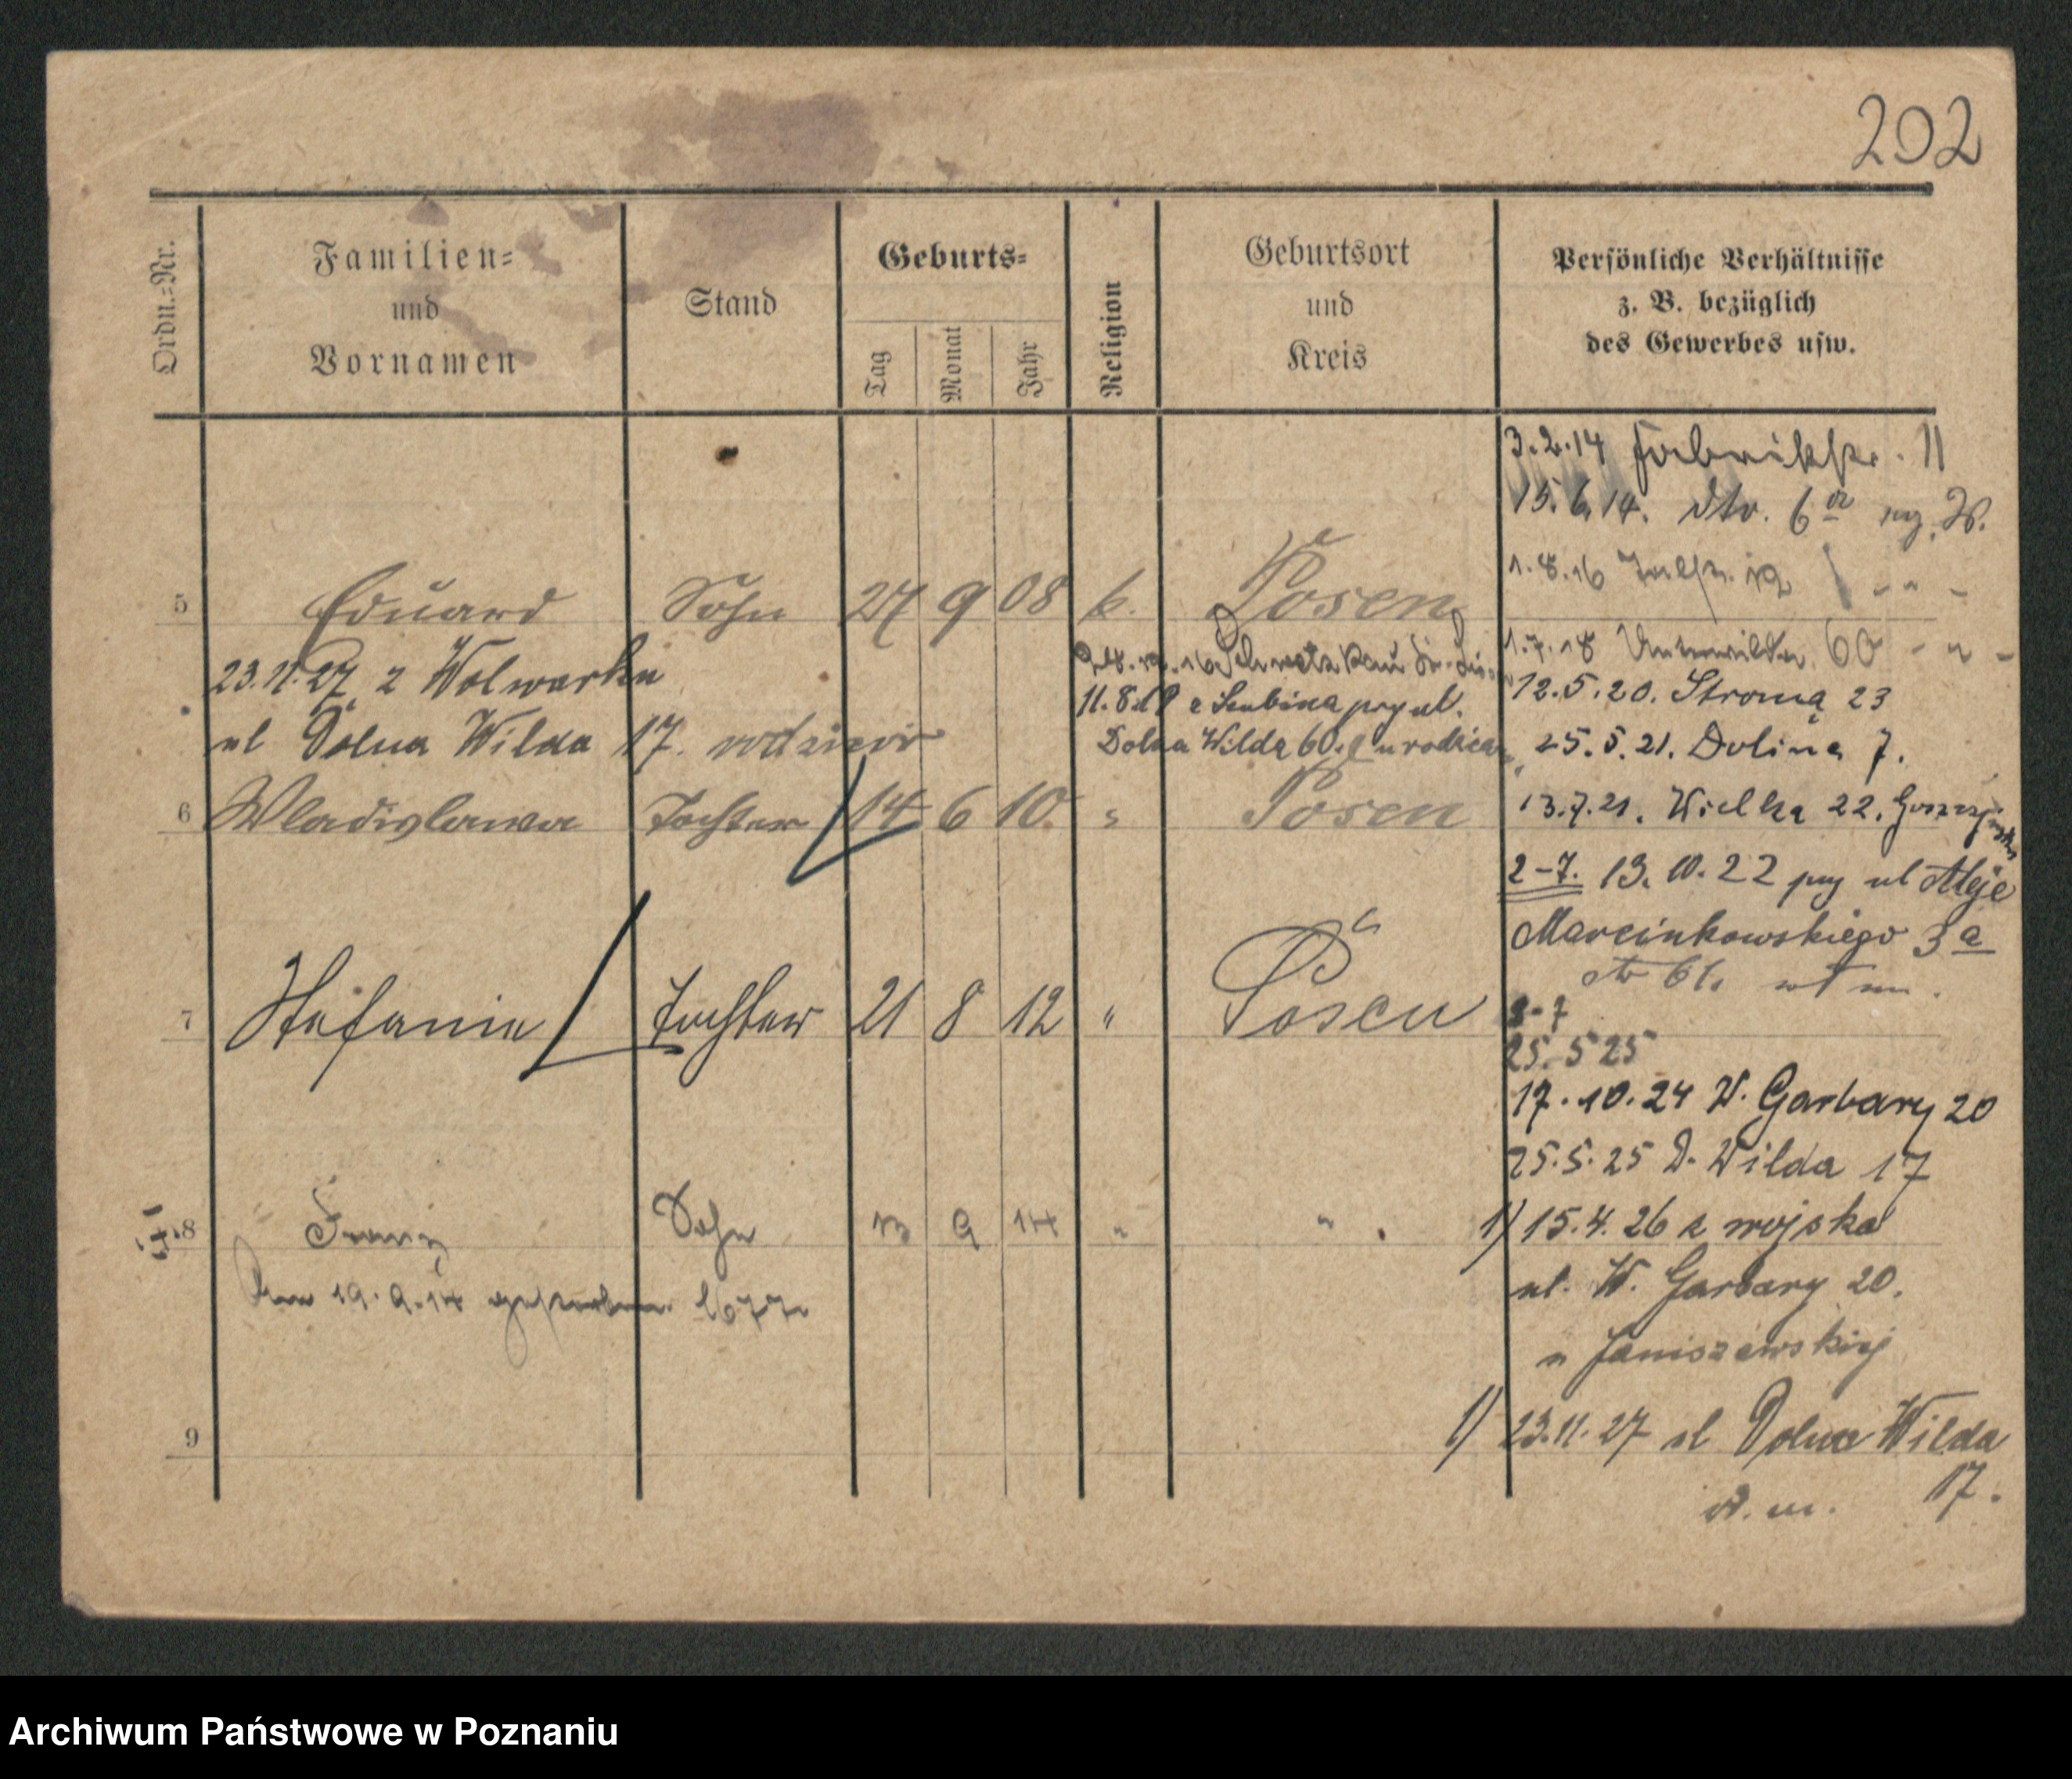 202
Ordn.-Nr.
Familien-
und
Vornamen
Stand
Geburts-
Tag
Monat
Jahr
Religion
Geburtsort
und
Kreis
Persönliche Verhältnisse
z. B. bezüglich
des Gewerbes usw.
3.2.14 Fabrikstr. 11
15.6.14. dto. 6a
1.8.16 Talstr. 12 - " -
5 Eduard Sohn 27 9 08 k. Posen
1.7.18 Unterwilda 60 - " -
23.11.27 z Wolwarku
11.8.18 z Szubina przy ul.
12.5.20. Stroma 23
ul Dolna Wilda 17. rodzice
Dolna Wilda 60. u rodziców
25.5.21. Dolina 7.
6 Wladislawa Tochter 14 6 10 " Posen
13.7.21. Wielka 22.
2-7. 13.10.22 przy ul Aleje
Marcinkowskiego 3a
7 Stefanie Tochter 21 8 12 " Posen
2-7
25.5 25
17.10.24 W. Garbary 20
25.5.25 D. Wilda 17
8 Franz Sohn 13 9 14 " "
1) 15.4.26 z wojska
Am 19.9.14 gestorben
ul. W. Garbary 20.
u Janiszewskiej
9
1) 23.11.27 ul Dolna Wilda
17.
Archiwum Państwowe w Poznaniu